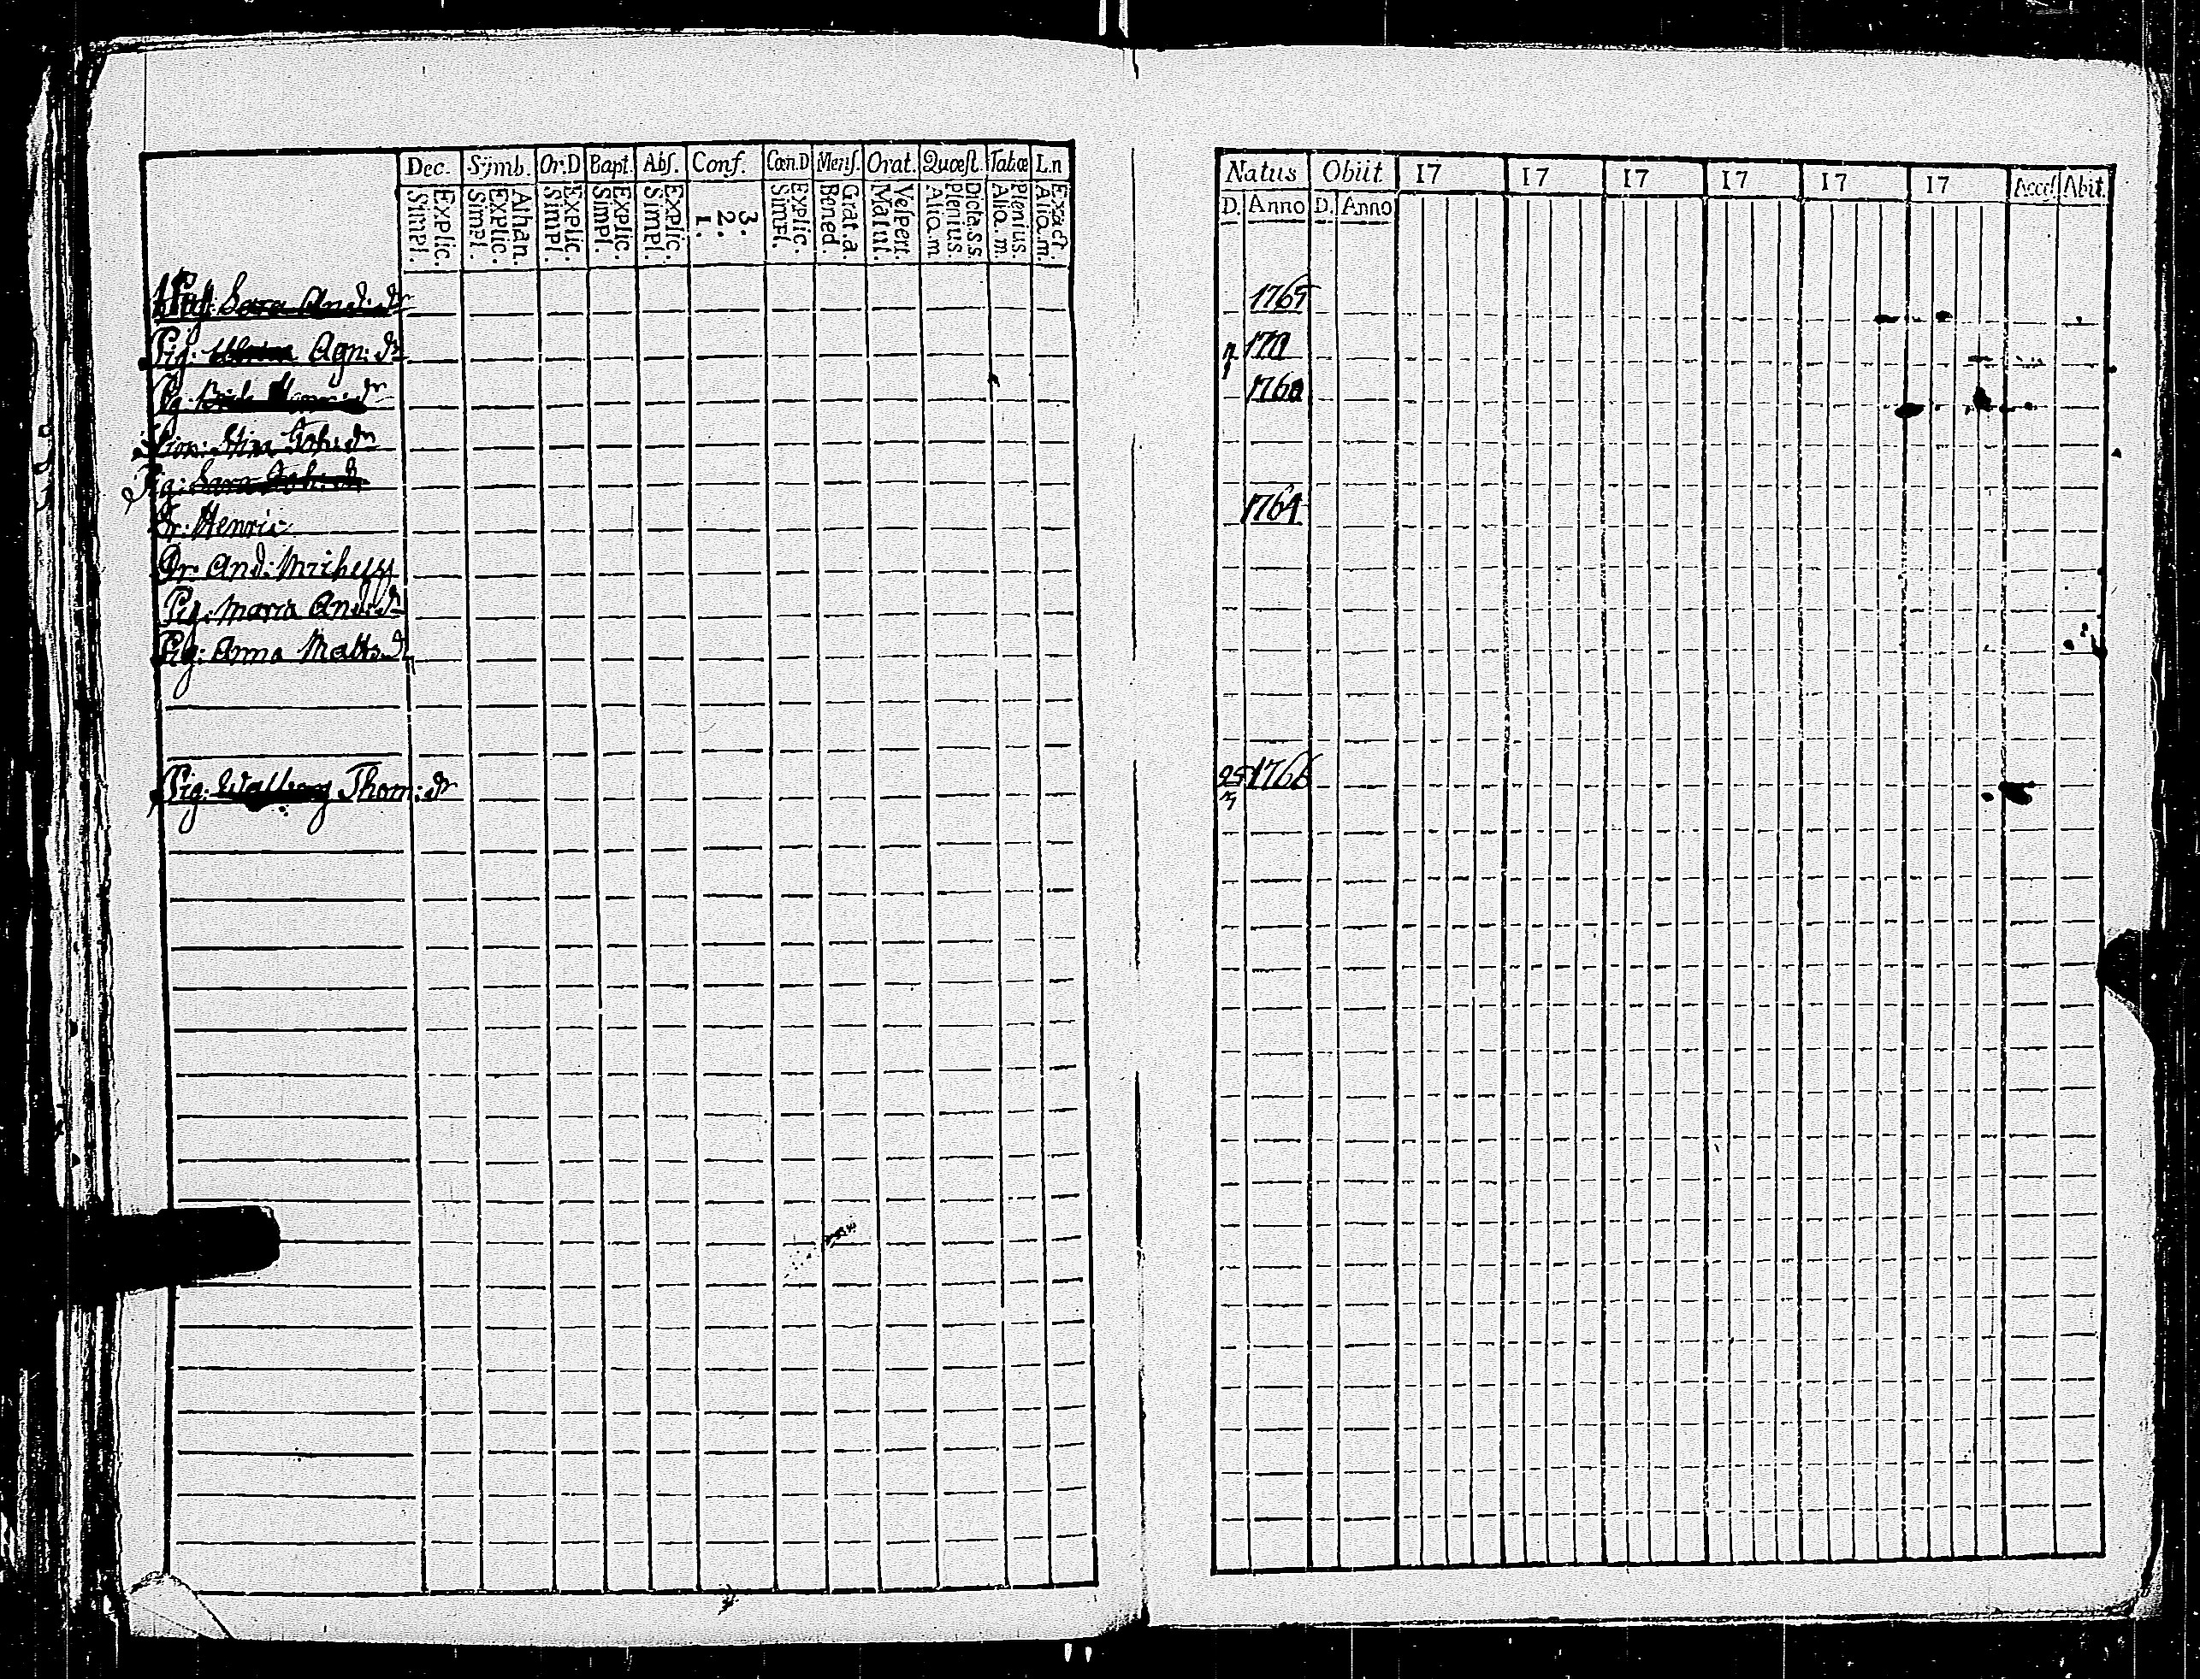 Dec. Symb. Or:D Bapt. Abs. Conf. Cœn.D Mens. Orat. Quæst. Tabæ L.n
Simpl. Explic. Simpl. Explic. Athan. Simpl. Explic. Simpl. Explic. Simpl. Explic. 1. 2. 3. Simpl. Explic. Bened. Grat. a. Matut. Vespert. Aliq. m. Plenius. Dicta.s.s. Aliq. m. Plenius. Aliq. m. Exact.
Natus Obiit 17 17 17 17 17 17 Access. Abit.
D. Anno D. Anno
Pig: Sara And:dr 1765
Pig: Agn: dr
Pig: 1760
Stina Joh:dr
Pig: Sara
Dr: Henric 1764
Dr And: Michelss
Pig: Maria And:dr
Pig: Anna Matts:dr
Pig: Walborg Thom:dr 25/3 1766